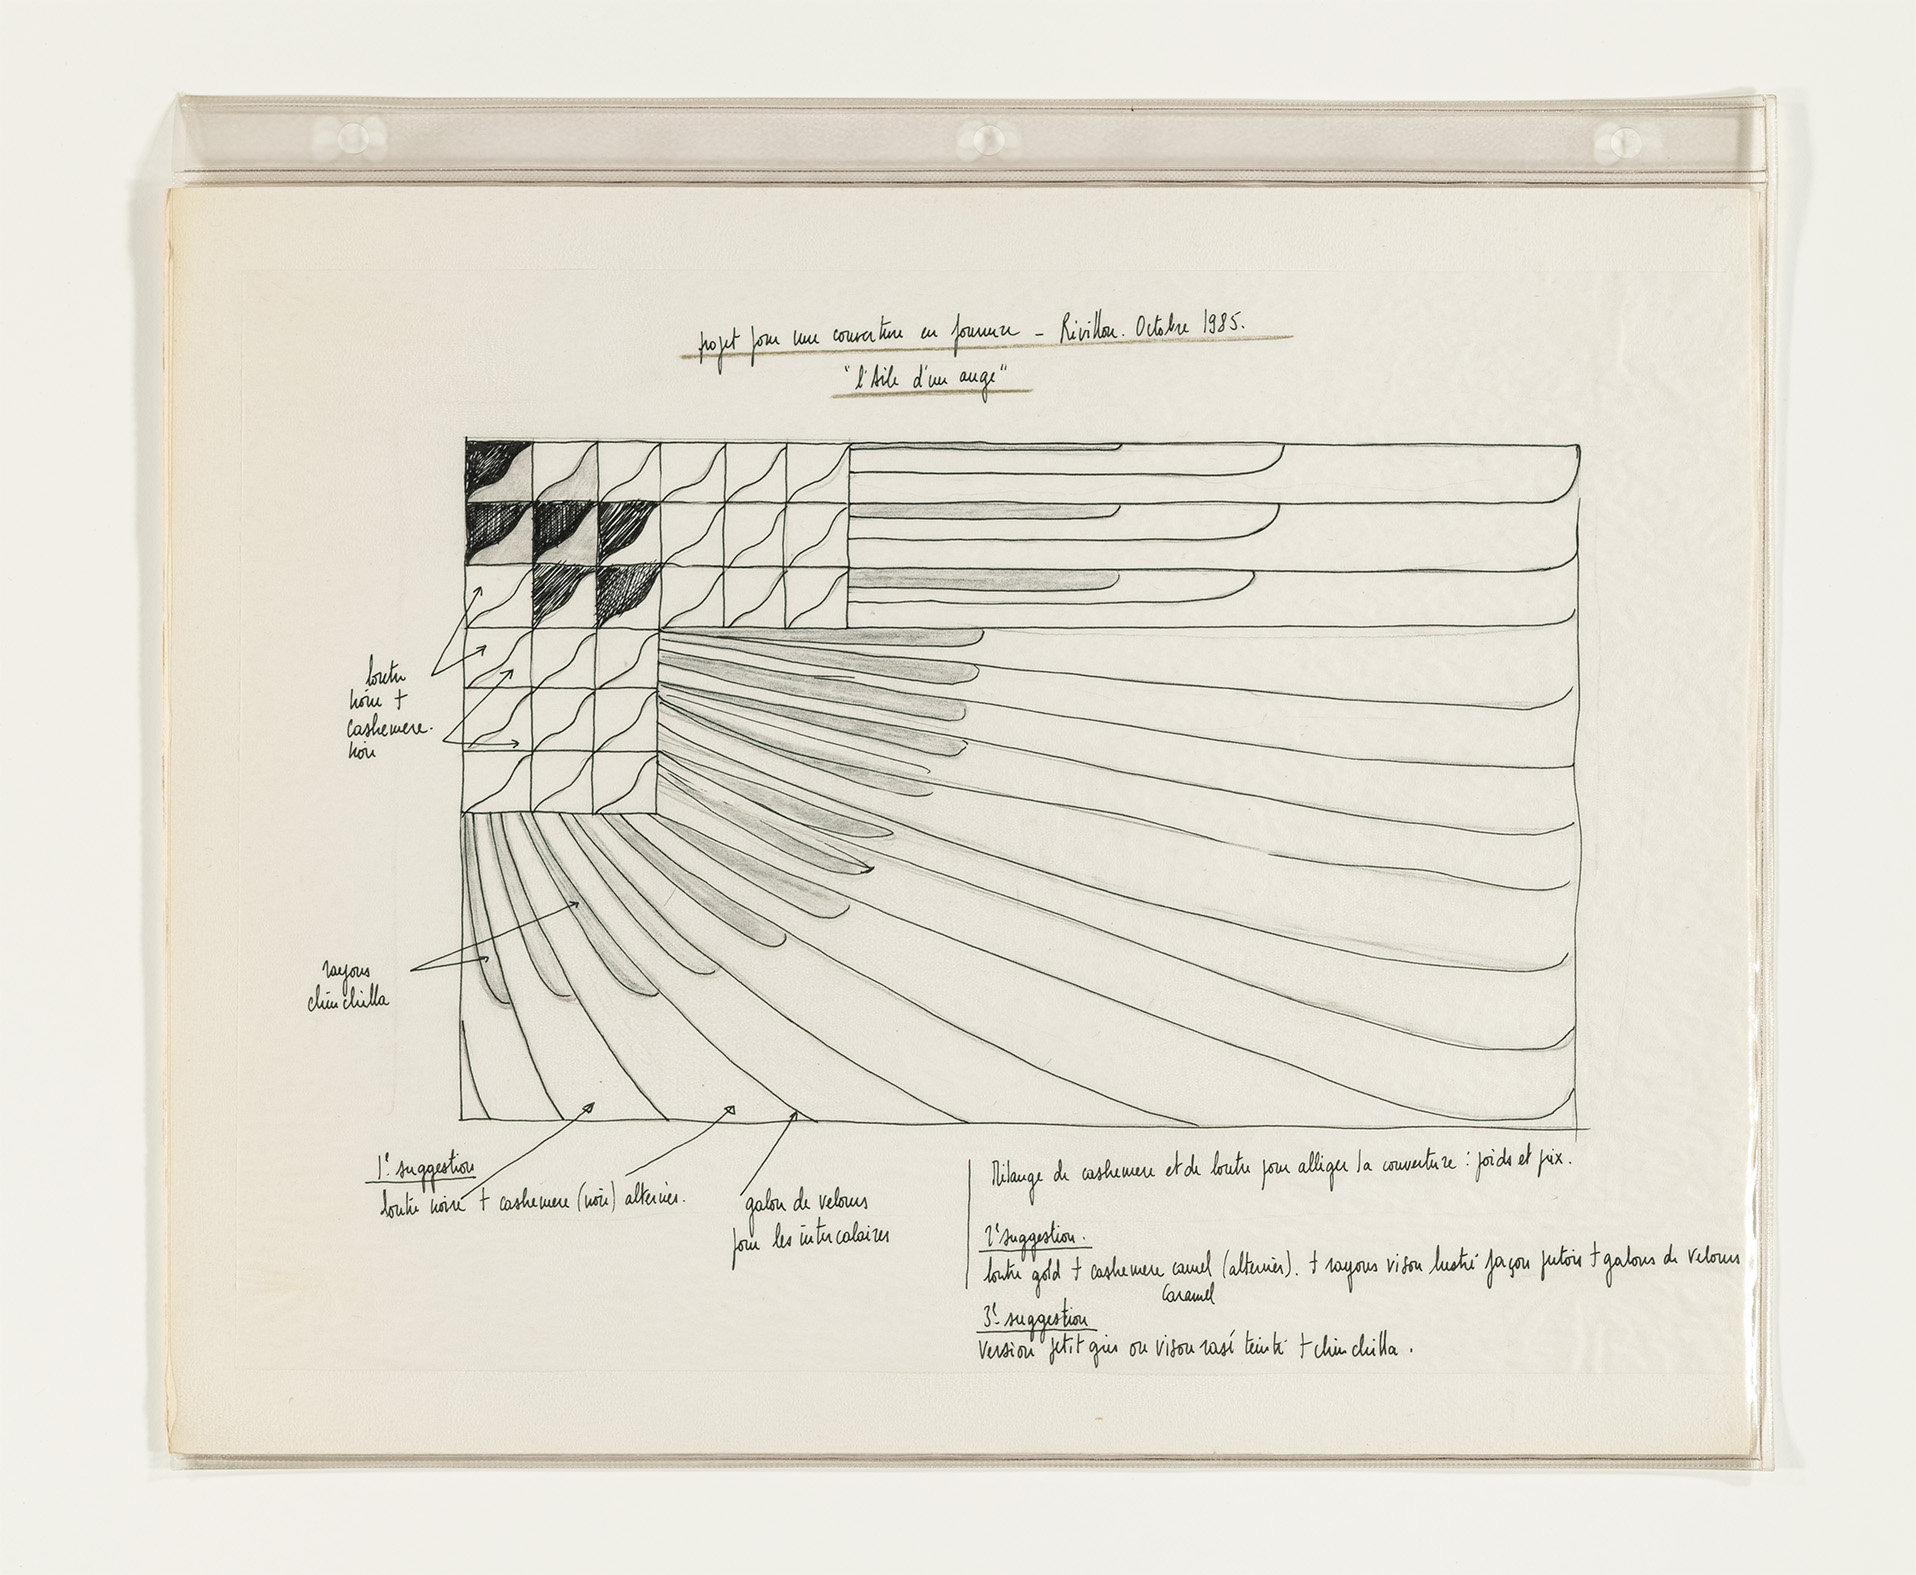 projet pour une couverture en fourrure – Révillon. Octobre 1985.
"l'Aile d'un ange"
loutre
noire +
cashemere.
noir
rayons
chinchilla
1e suggestion
loutre noire + cashemere (noir) alternés.
galon de velours
pour les intercalaires
Mélange de cashemere et de loutre pour alléger la couverture : poids et prix.
2e suggestion.
loutre gold + cashemere camel (alternés). + rayons vison lustré façon putois + galons de velours
caramel
3e suggestion
Version petit gris ou vison rasé teinté + chinchilla.